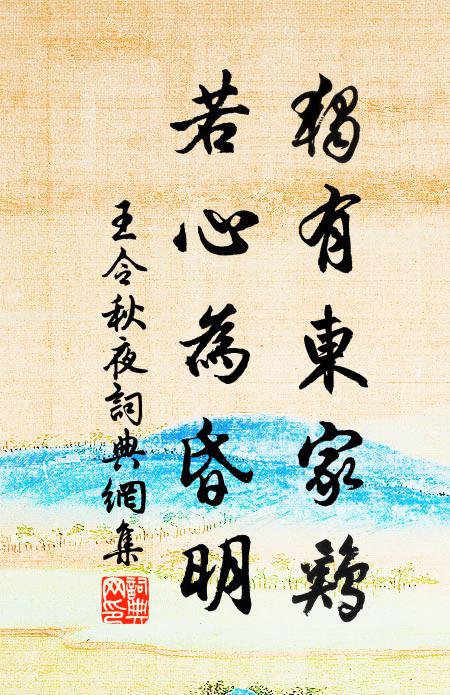 獨有東家鷄
若心為昏明
王令秋夜詞典網集
詞典网印